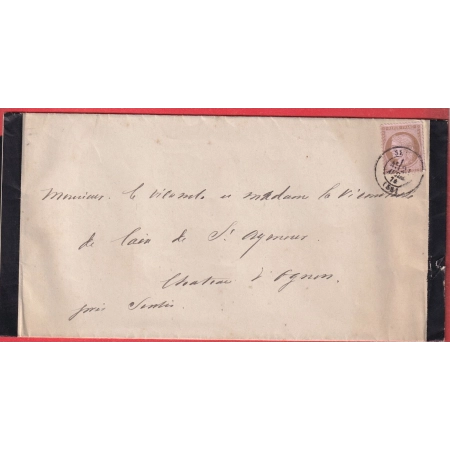 Monsieur le Vicomte et madame la Vicomtesse
de Caix de St Aymour
Chateau d'Ognon
près Senlis